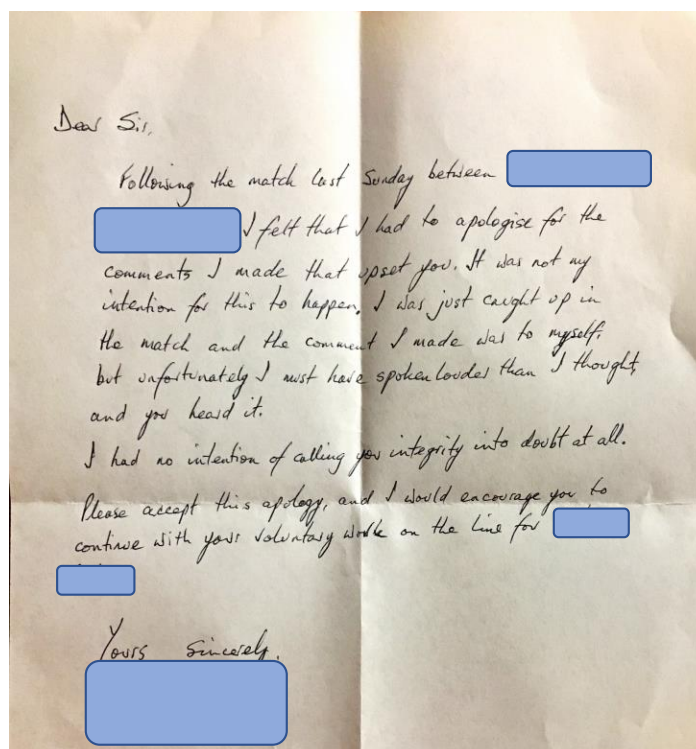 Dear Sir,
Following the match last Sunday between
I felt that I had to apologise for the
comments I made that upset you. It was not my
intention for this to happen. I was just caught up in
the match and the comment I made was to myself,
but unfortunately I must have spoken louder than I thought,
and you heard it.
I had no intention of calling your integrity into doubt at all.
Please accept this apology, and I would encourage you to
continue with your voluntary work on the line for
Yours Sincerely,